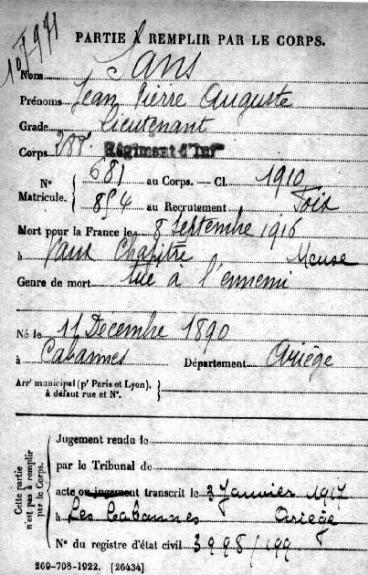 PARTIE À REMPLIR PAR LE CORPS.
Nom Sans
Prénoms Jean Pierre Auguste
Grade Lieutenant
Corps 288e Régiment d'Inf
N° 681 au Corps. — Cl. 1910
Matricule. 854 au Recrutement Foix
Mort pour la France le 8 Septembre 1916
à Vaux Chapitre Meuse
Genre de mort tué à l'ennemi
Né le 11 Décembre 1890
à Cabannes Département Ariège
Arrt municipal (pr Paris et Lyon), à défaut rue et N°.
Cette partie n'est pas à remplir par le Corps.
Jugement rendu le
par le Tribunal de
acte ou jugement transcrit le 3 Janvier 1917
à Les Cabannes Ariège
N° du registre d'état civil 3998/199
269-708-1922. [26434]